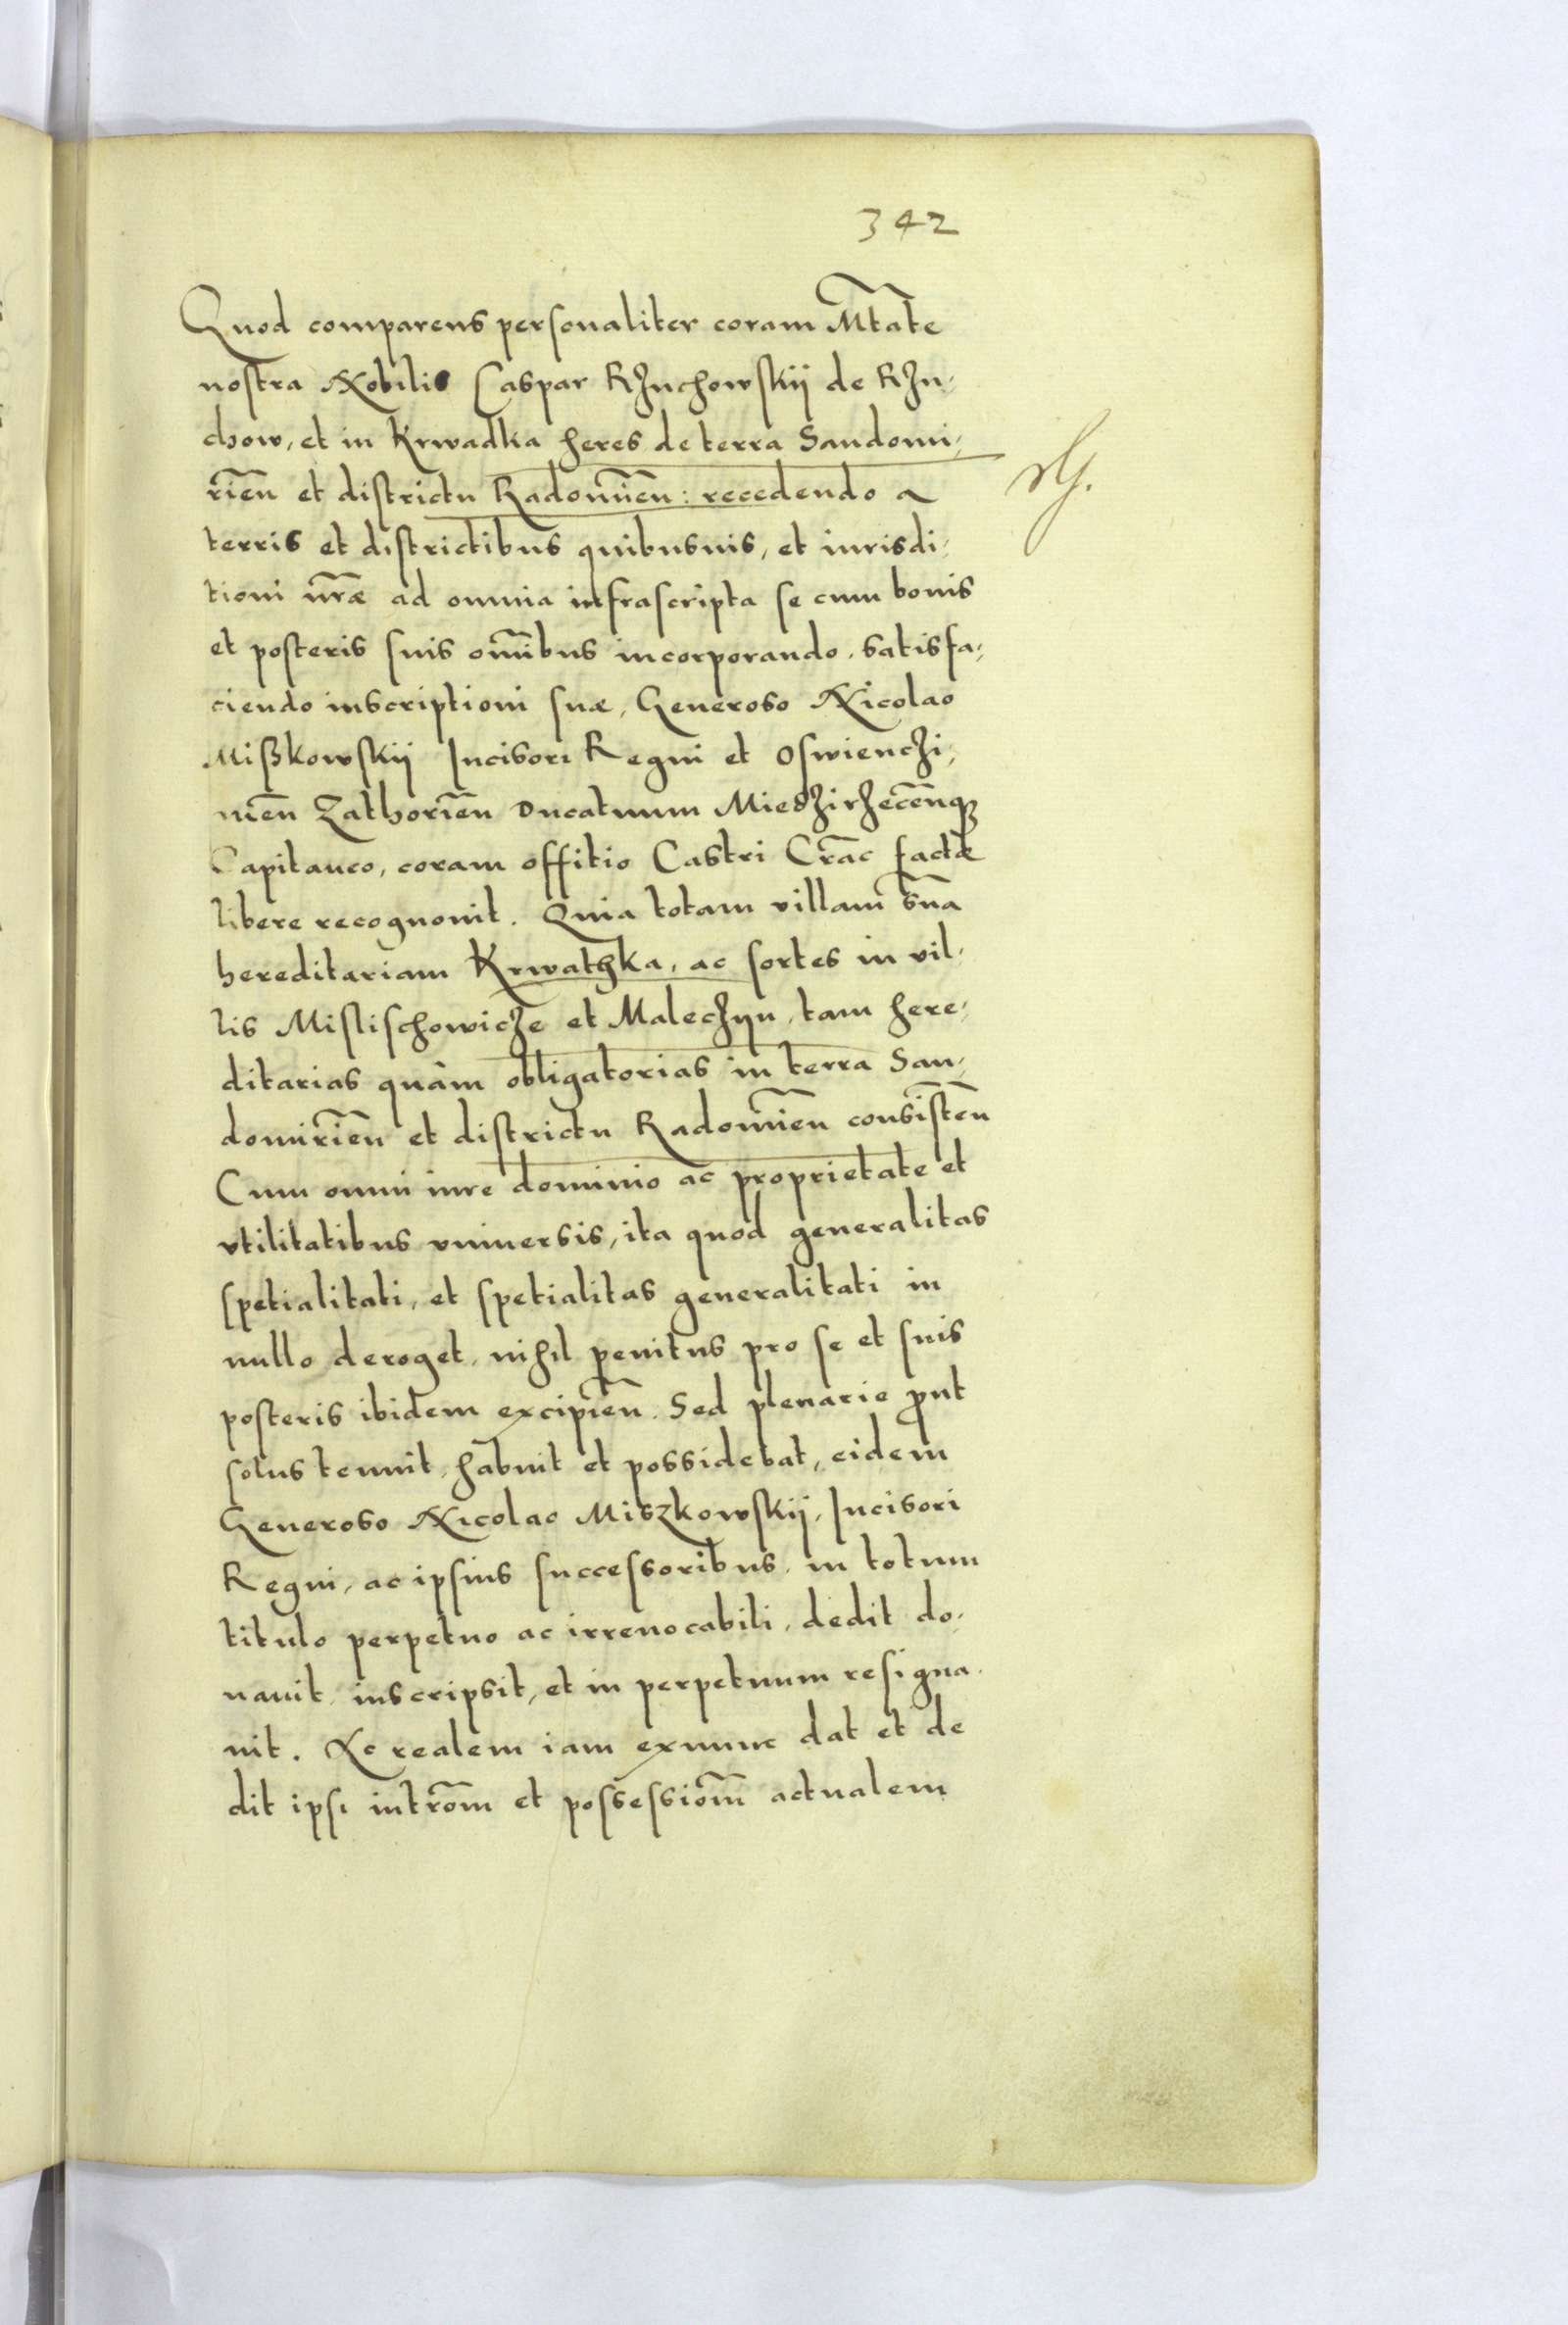 342
Quod comparens personaliter coram Mtate
nostra Nobilis Caspar Rzuchowskij de Rzu-
chow, et in Krwadka heres de terra Sandomi-
rien et districtu Radomien: recedendo a
terris et districtibus quibusuis, et iurisdi-
tioni nrae ad omnia infrascripta se cum bonis
et posteris suis omibus incorporando, satisfa-
ciendo inscriptioni suae, Generoso Nicolao
Mißkowskij Incisori Regni et Oswienczi-
men Zathorien Ducatuum Miedzirzecenq3
Capitaneo, coram offitio Castri Crac factae
libere recognouit. Quia totam villam sua
hereditariam Krwathka, ac sortes in vil-
lis Mislischowicze et Maleczyn, tam here-
ditarias quàm obligatorias in terra San-
domirien et districtu Radomien consisten
Cum omni iure dominio ac proprietate et
vtilitatibus vniuersis, ita quod generalitas
spetialitati, et spetialitas generalitati in
nullo deroget, nihil penitus pro se et suis
posteris ibidem excipien. Sed plenarie prout
solus tenuit, habuit et possidebat, eidem
Generoso Nicolao Miszkowskij, Incisori
Regni, ac ipsius successoribus, in totum
titulo perpetuo ac irreuocabili, dedit do-
nauit, inscripsit, et in perpetuum resigna-
uit. Ac realem iam exnunc dat et de
dit ipsi introm et possessiom actualem